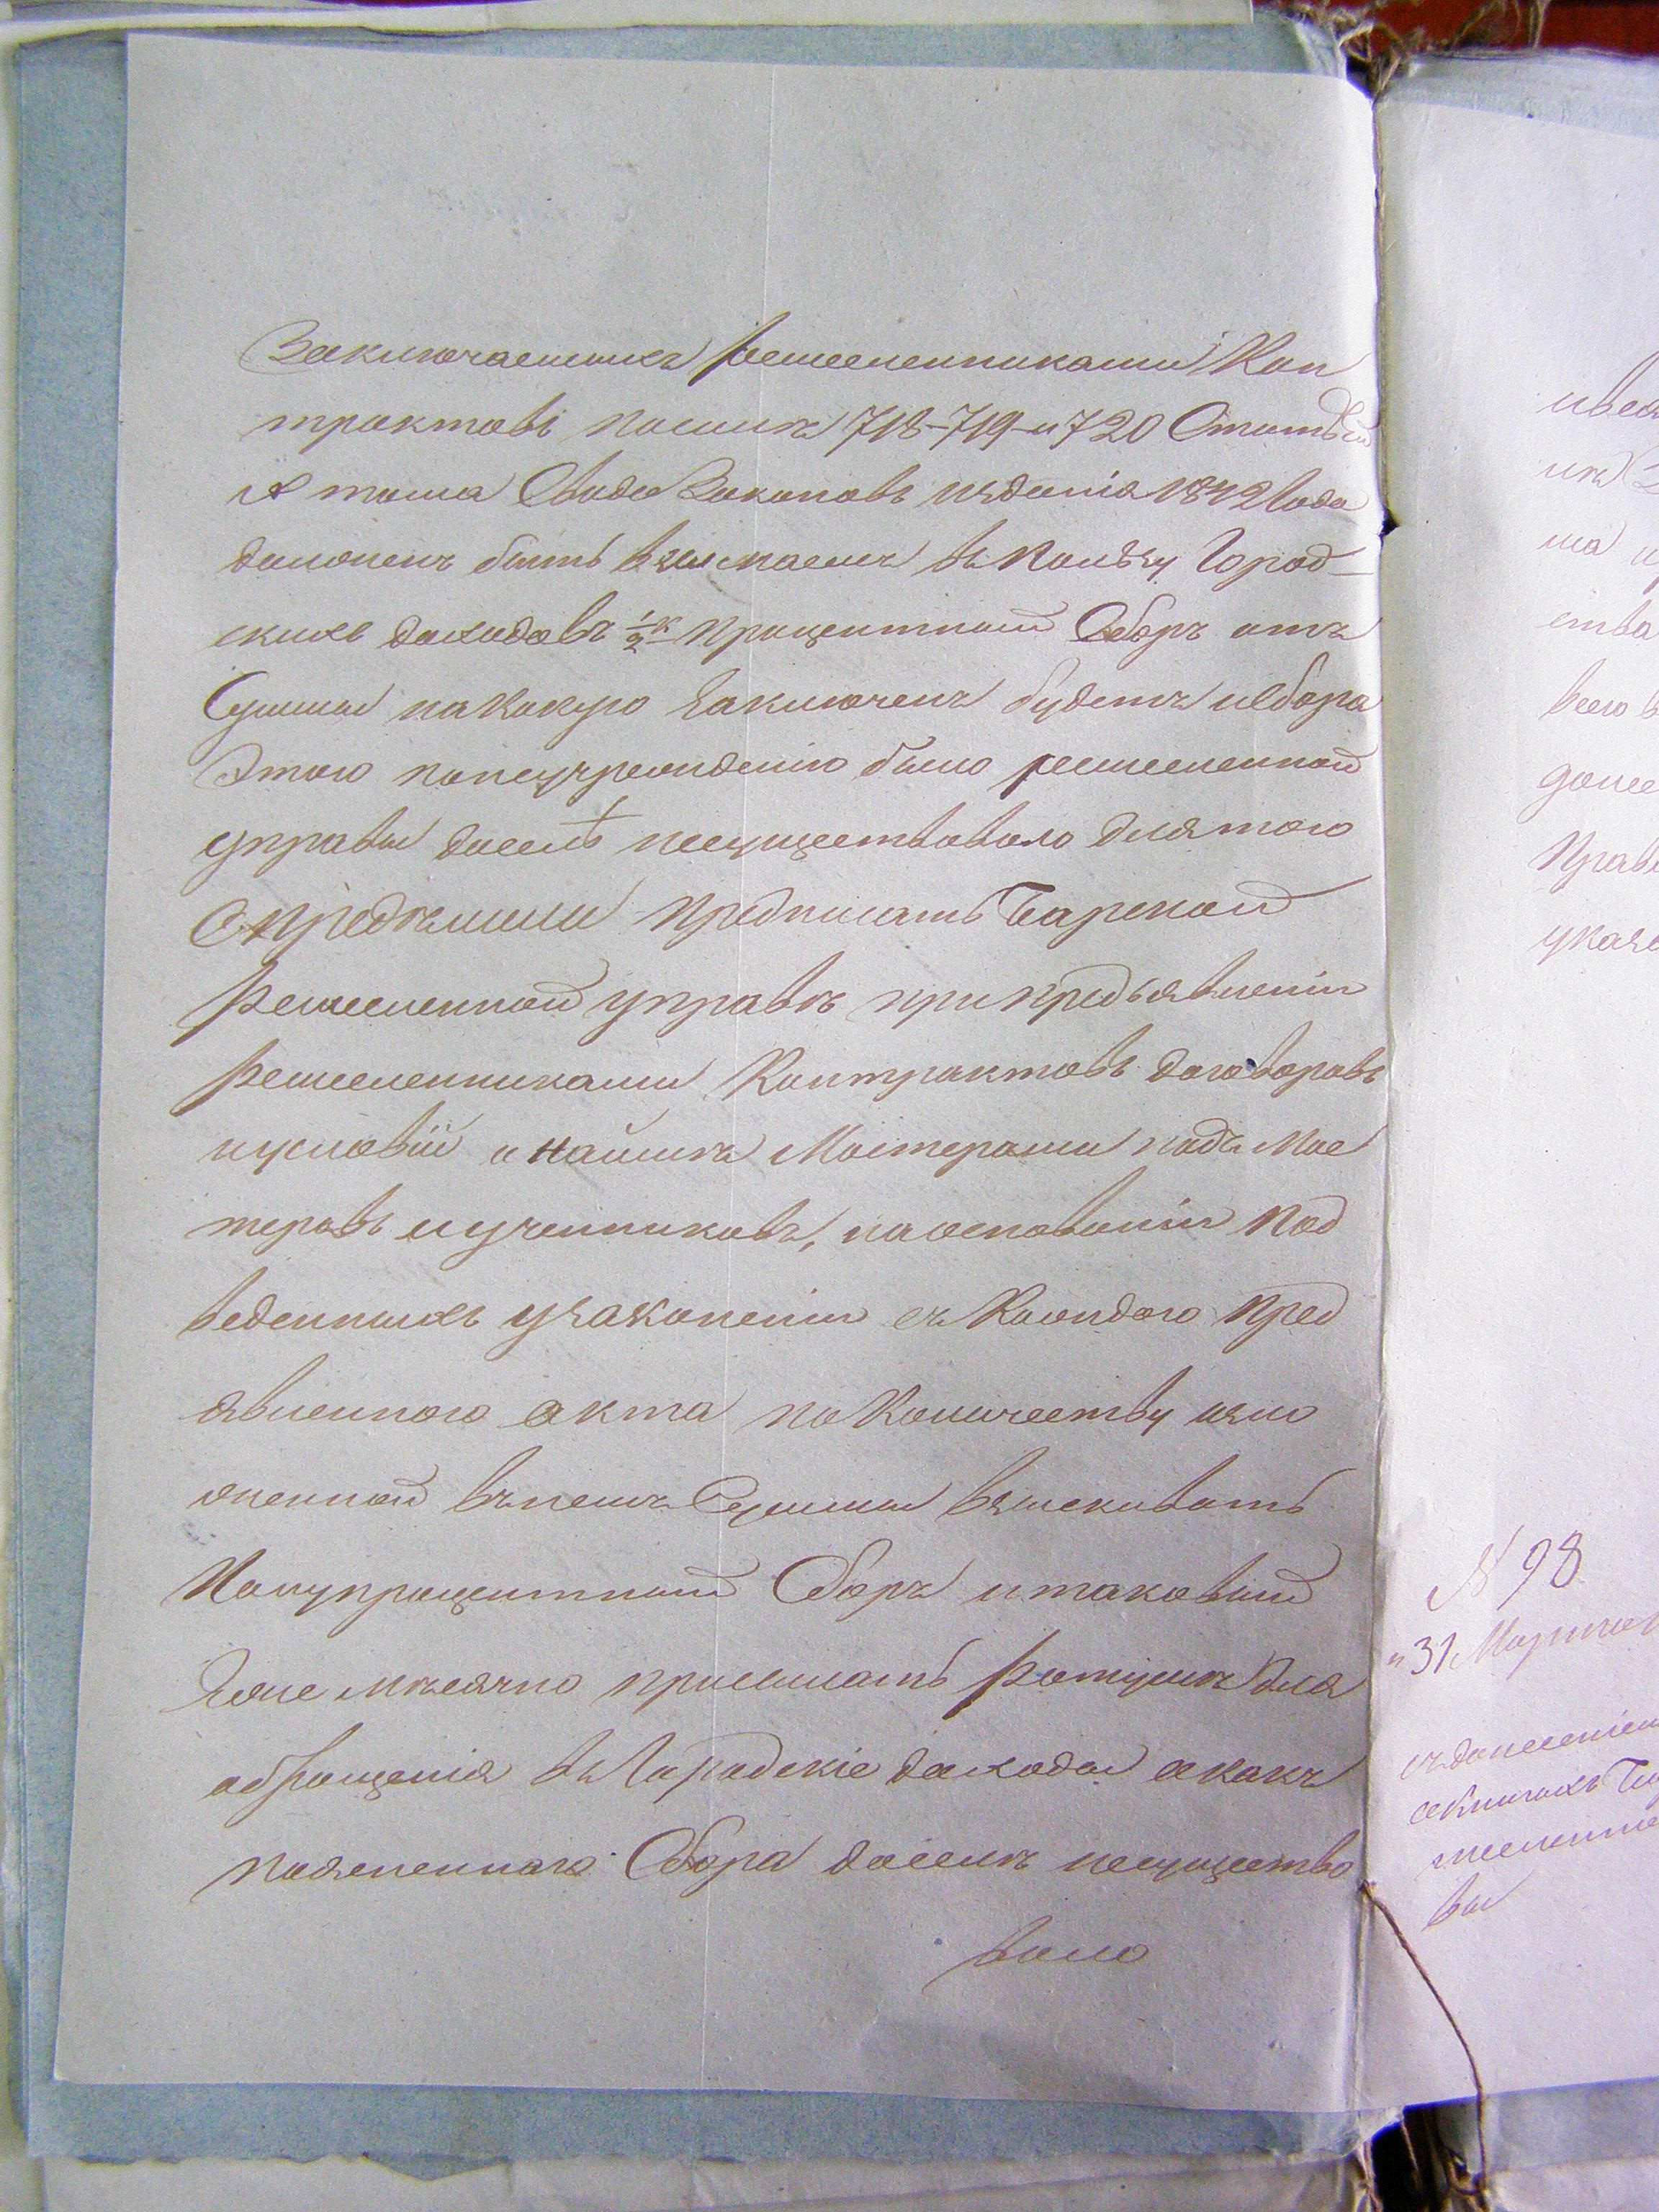 Заключаемыхъ ремесленниками Кон
трактовъ посилѣ 718-719-и 720 Статьѣй
тома Свода Законовъ изданія 1842 года
долженъ быть взымаемъ въ пользу Город-
скихъ доходовъ ½ к процентный Сборъ отъ
Суммы на какую заключенъ будетъ и Сбора
Этого понеучрежденію было ремесленной
управы доселѣ несуществовало для того
Опредѣлили предписать Барской
ремесленной управѣ при предъявленіи
ремесленниками Контрактовъ договоровъ
иусловій о наймѣ Мастерами подъ Мас
теровъ и учениковъ, на основаніи под
веденныхъ узаконеній съ Каждого пред
явленного акта по Количеству изло
женной въ немъ Суммы взыскивать
Полупроцентный Сборъ и таковый
Еже мѣсячно присылать ратушѣ для
обращенія въ Городскіе доходы а какъ
поясненного Сбора доселѣ несущество
вало
ства
всего в
донес
Прав
указ
N 98
"31 Марта
съ донесеніем
вы